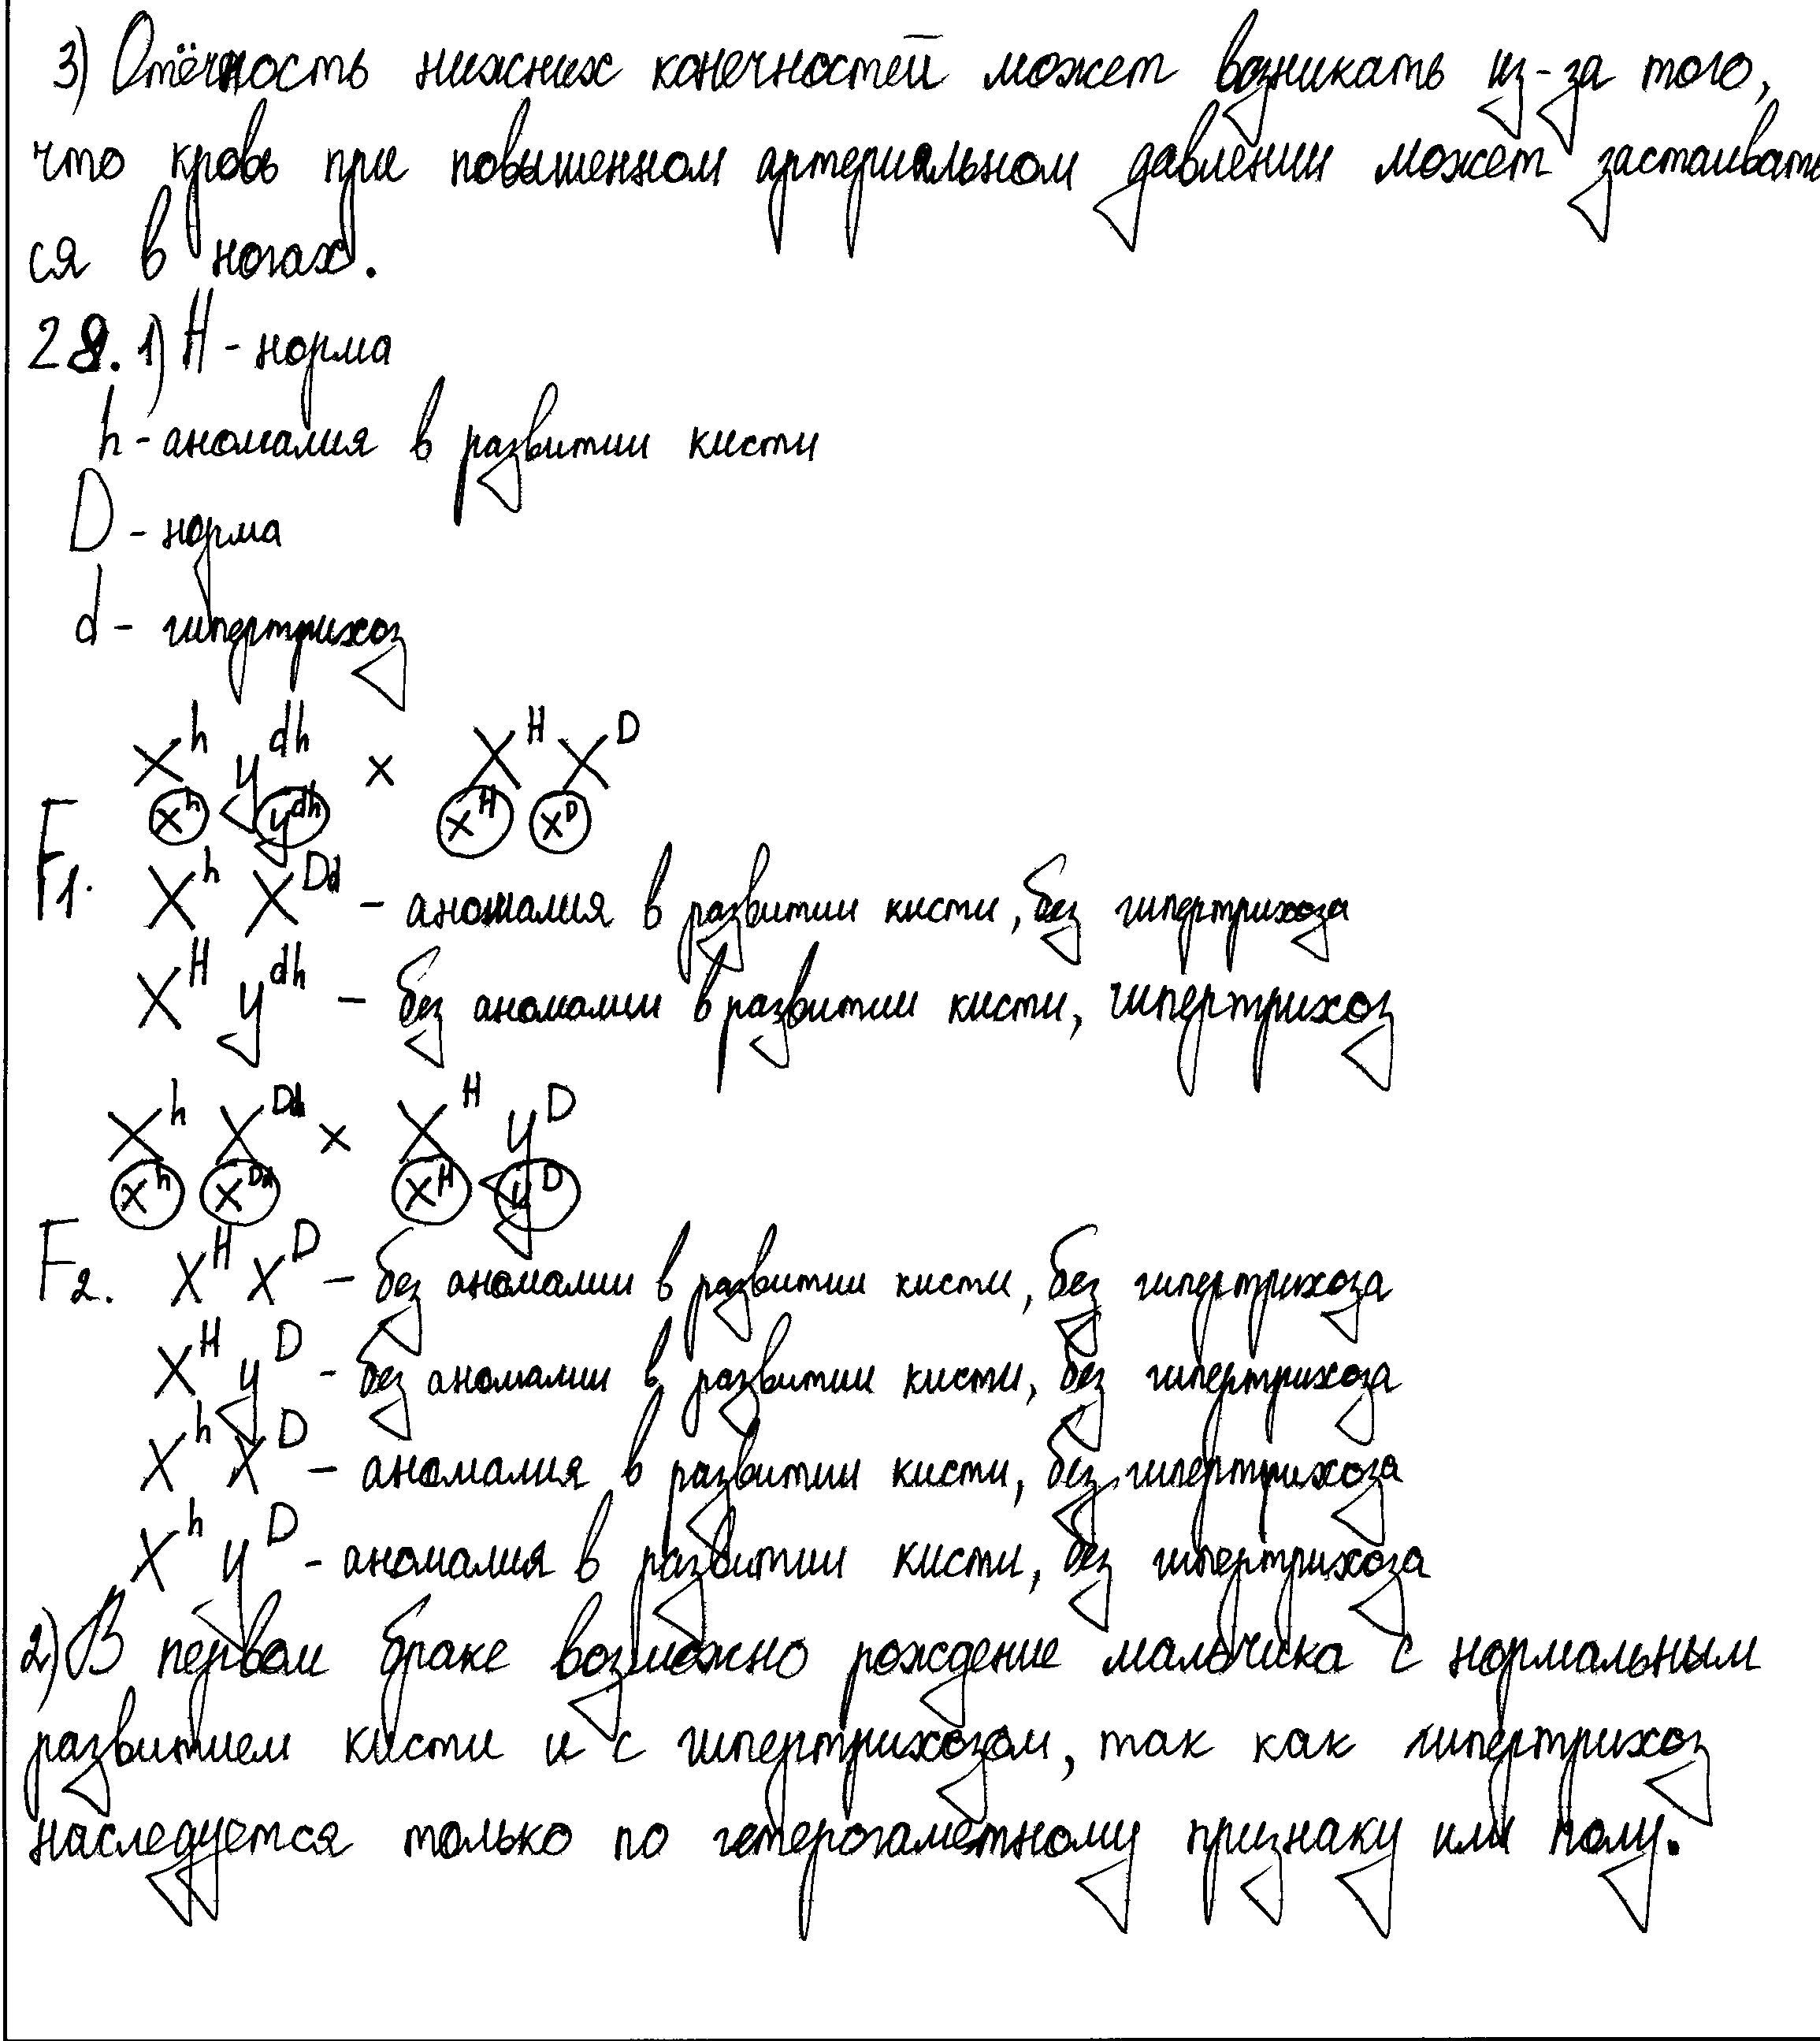 3) Отёчность нижних конечностей может возникать из-за того,
что кровь при повышенном артериальном давлении может застаивать
ся в ногах.
28. 1) H - норма
h - аномалия в развитии кисти
D - норма
d - гипертрихоз
X^h y^dh × X^H X^D
X^h y^dh X^H X^D
F1. X^h X^Dd - аномалия в развитии кисти, без гипертрихоза
X^H y^dh - без аномалии в развитии кисти, гипертрихоз
X^h X^Dd × X^H y^D
X^h X^Dd X^H y^D
F2. X^H X^D - без аномалии в развитии кисти, без гипертрихоза
X^H y^D - без аномалии в развитии кисти, без гипертрихоза
X^h X^D - аномалия в развитии кисти, без гипертрихоза
X^h y^D - аномалия в развитии кисти, без гипертрихоза
2) В первом браке возможно рождение мальчика с нормальным
развитием кисти и с гипертрихозом, так как гипертрихоз
наследуется только по гетерогаметному признаку или полу.